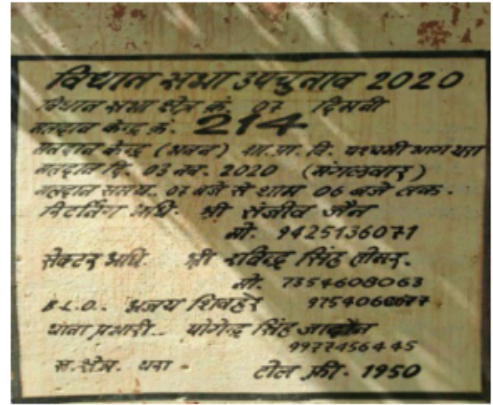 विधान सभा उपचुनाव 2020
विधान सभा क्षेत्र क्रं. 07 दिमनी
मतदान केन्द्र क्रं. 214
मतदान केन्द्र (भवन) शा. प्रा. वि. पश्चमी भाग धरा
मतदान दि. 03 नव. 2020 (मंगलवार)
मतदान समय. 07 बजे से शाम 06 बजे तक.
रिटर्निंग अधि. श्री संजीव जैन
मो. 9425136071
सेक्टर अधि. श्री रविन्द्र सिंह तोमर.
मो. 7354608063
B.L.O. अजय शिवहरे
थाना प्रभारी.. योगेन्द्र सिंह जादौन
9977456445
म.क्षेत्र. धरा - टोल फ्री. 1950